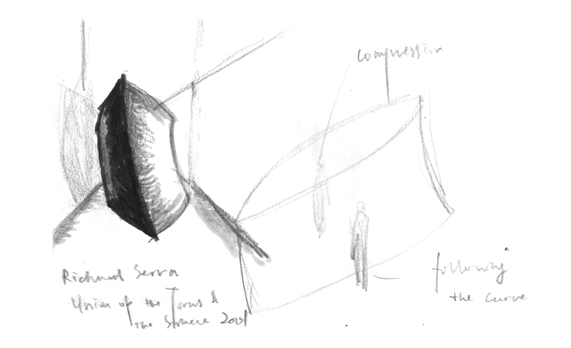 compression
Richard Serra
Union of the Torus &
the Sphere 2001
following
the curve